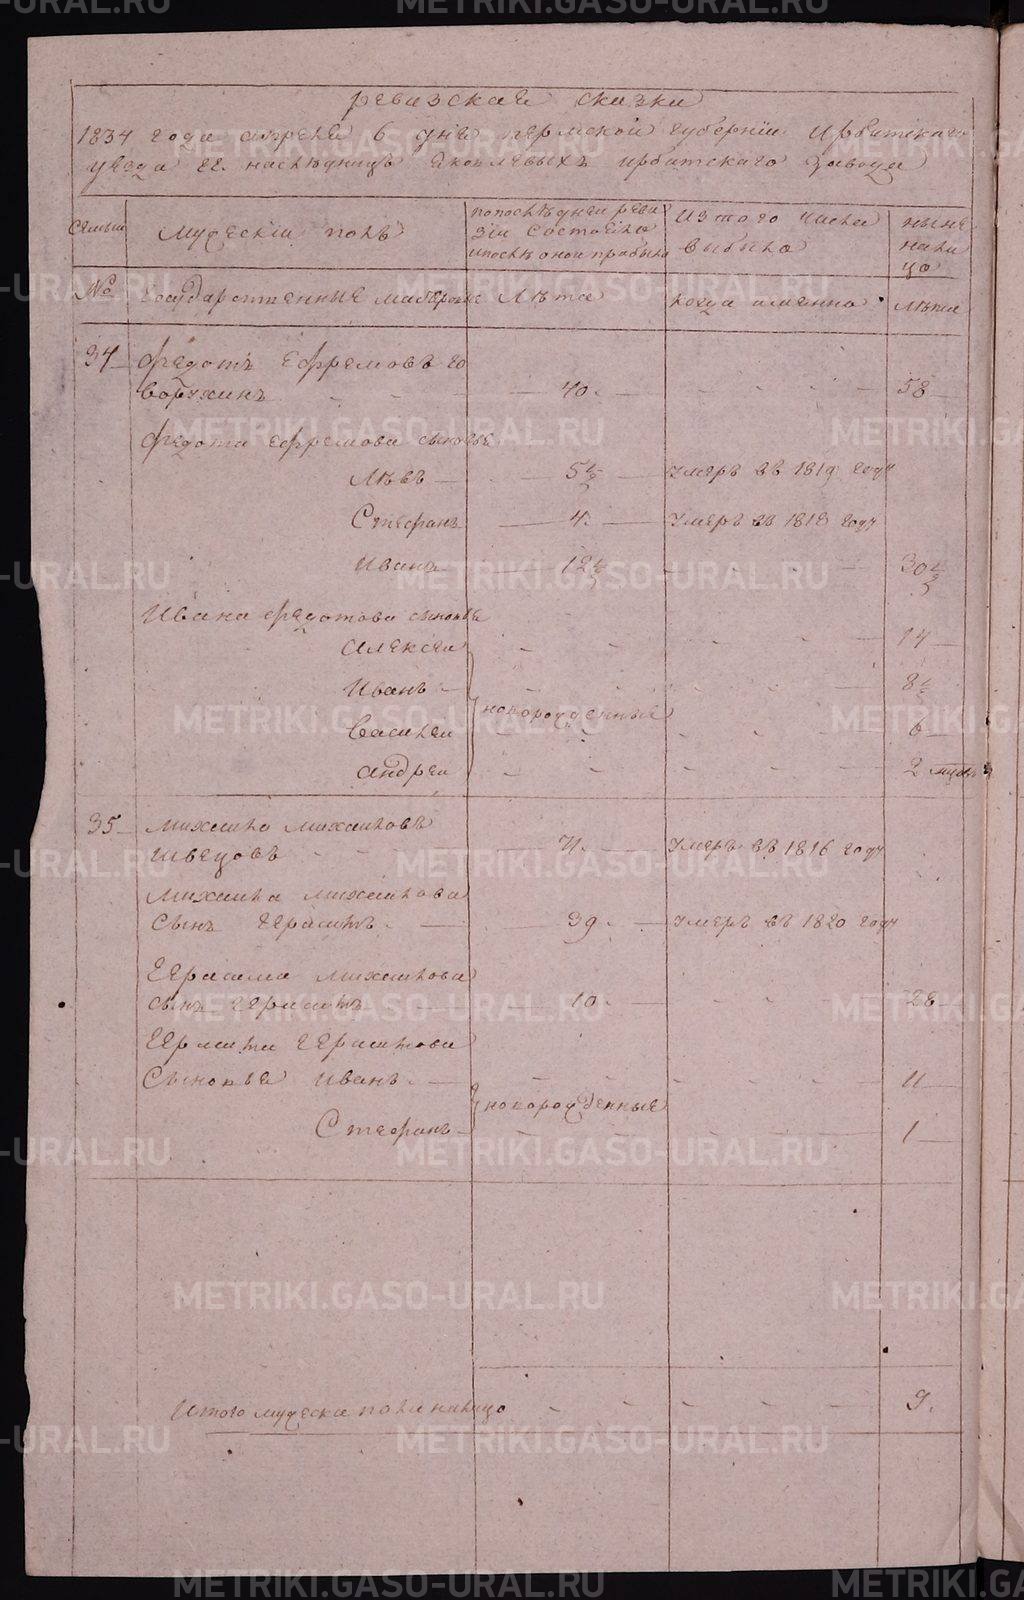 ревизская сказка
1834 года апреля 6 дня пермской губернии Ирбитскаго
уезда гг. наследниц Яковлевыхъ ирбитскаго завода
семьи
мужескiй полъ
по последней реви
зiи состояло
и после оной прибыло
Из того числа
выбыло
ныне
на ли
цо
№
Государственные мастеровые
Лѣта
когда именно
лѣта
34
Федотъ Ефремовъ го
ворухинъ
40.
58
Федота Ефремова сыновья
Лѣвъ
5½
умеръ въ 1819 году
Стефанъ
4.
умеръ въ 1818 году
Иванъ
12½
30½
Ивана Федотова сыновья
Алексеи
14
Иванъ
8½
новорожденные
Василеи
6
Андреи
2
35
Михаило Михаиловъ
Швецовъ
71.
умеръ въ 1816 году
Михаила михаилова
сынъ Герасимъ
39.
умеръ въ 1820 году
Герасима михаилова
сынъ Герасимъ
10.
28
Герасима Герасимова
Сыновья Иванъ
11
новорожденные
Стефанъ
1
Итого мужеска пола налицо
9.
METRIKI.GASO-URAL.RU